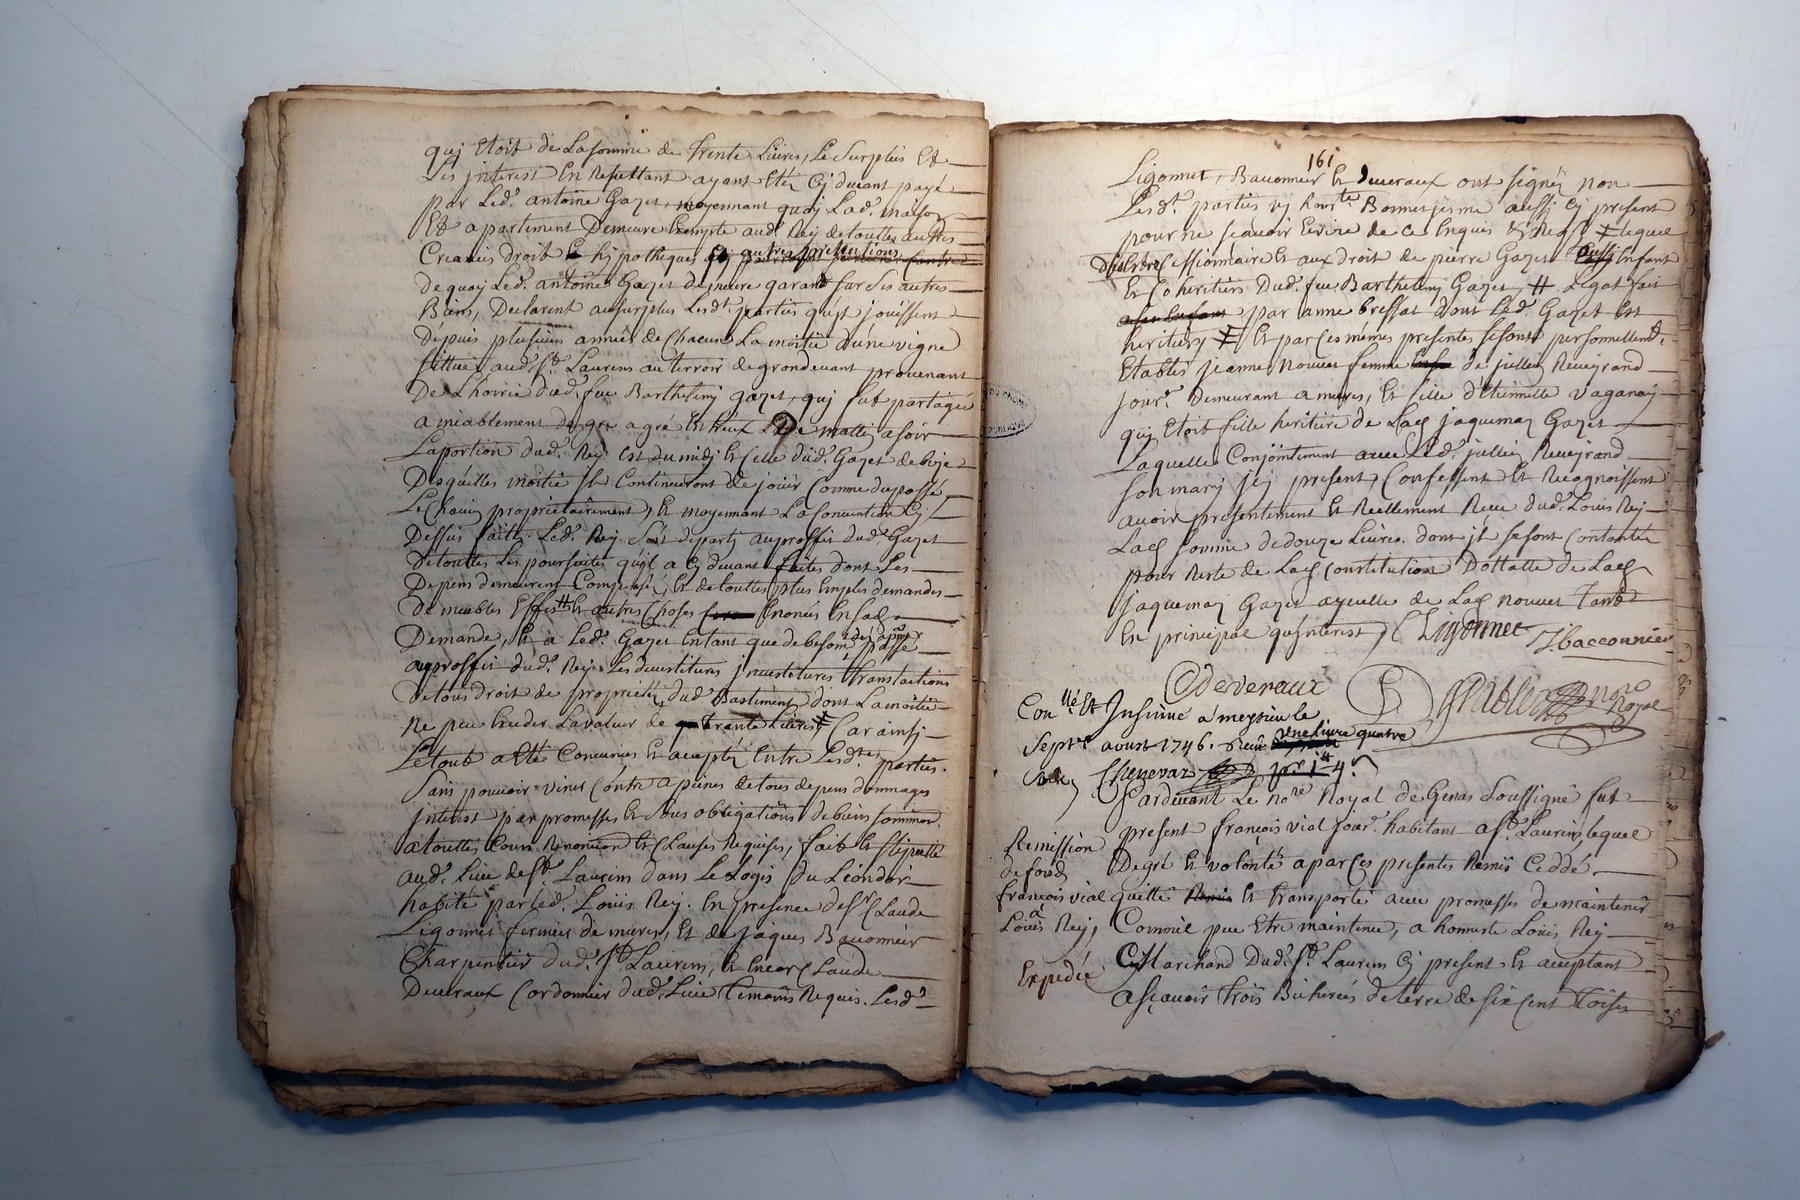 quj Etoit de La somme de trente Livres, Le Surplus Et
Les jnterest En Resultant ayant Etéz Cj devant payé
par Led.^t antoine Gazet, moyennant quoy Lad.^e maison
Et apartement Demeure Exempte aud.^t Rej de touttes autres
Creances droit Et hjpotheques
de quoy Led.^t antoine Gazet demeure garand sur ses autres
Biens, Declarent au surplus Lesd.^t parties qu'ils jouissent
depuis plusieurs année de Chacun La moitié d'une vigne
scittuée aud.^t S.^t Laurens au terroir de grondevant provenant
De L'hoirie dud.^t feu Barthelemy gazet, quj fut partagée
amiablement de gré a gré Entreux
La portion dud.^t Rej Est du midj Et Celle dud.^t Gazet de bize
Desquelles moitié jls Continueront de jouir Comme du passé
Le Chacun proprietairement, Et moyennant La Convention Cj
Dessus faitte. Led.^t Rej s'est departj au proffit dud.^t Gazet
de touttes Les poursuites qu'il a Cj devant faites dont Les
Depens demeurent Compensé, Et de touttes plus amples demandes
De meubles Effets # Et autres Choses Enoncés En sad.^e
Demande, Et a Led.^t Gazet Entant que de besoin passé
au proffit dud.^t Rej Les devestitures jnvestitures translations
de tous droit de proprieté dud.^t Bastiment dont La moitié
ne peu Exceder La valeur de trente Livres Car ainsj
Le tout a Eté Convenus Et acceptéz Entre Lesd.^tes parties.
Sans pouvoir venir Contre a peines de tous depens dommages
jnterest par promesses Et sous obligations de biens
a touttes Cours Renonciation Et Clauses Requises, fait Et stipullé
aud.^t Lieu de S.^t Laurens dans Le Logis du Lion dor
habité par Led.^t Louis Rej. En presence de s.^r Claude
Ligonnet fermier de mieres, Et de jaques Baconnier
Charpentier dud.^t S.^t Laurens, Et Encor Claude
Deveraux Cordonnier dud.^t Lieu temoins Requis. Lesd.^t
161
Ligonnet, Baconnier Et deveraux ont signéz non
Lesd.^t parties nj aussj Cj present
pour ne scavoir Ecrire de Ce Enquis Et Req.^s Lequel
Cessionnaire Et aux droit de pierre Gazet aussj Enfant
Et Coheritiers Dud.^t feu Barthelemy Gazet, # Legat fait
par anne bressat dont Led.^t Gazet Est
heritiers Et par Ces mêmes presentes se sont personnellem.^t
Etablis jeanne nouvet femme de jullien Reveyrand
jour.^r Demeurant a mieres, Et fille d'Etiennette vaganay
quj Etoit fille heritiere de Lad.^e jaquemaz Gazet
Laquelle Conjointement avec Led.^t jullien Reveyrand
son marj jcj present, Confessent Et Recognoissent
avoir presentement Et Reellement Receu dud.^t Louis Rej
Lad.^e somme de douze Livres dont jls se sont Contentés
pour Reste de Lad.^e Constitution Dottalle de Lad.^e
jaquemaz Gazet ayeulle de Lad.^e nouvet tant
En principal qu'jnterest, C Ligonnet J Baconnier
C deveraux
no.^re Royal
Con.^llé Et Insinué a meyzieu le
Sept.^e avust 1746. Receu une Livre quatre
Chenevaz
Pardevant Le No.^re Royal de Genas soussigné fut
present françois vial jour.^r habitant a S.^t Laurens, Lequel
De gré Et volonté a par Ces presentes Remis Ceddé
quitté Remis Et transporté avec promesses de maintenir
Comme peu Etre maintenu, a honneste Louis Rej
Marchand Dud.^t S.^t Laurens Cj present Et acceptant
a sçavoir trois Bicherées de terre de six Cent toises
Remission
de fond
françois vial
a
Louis Rej,
Expedié